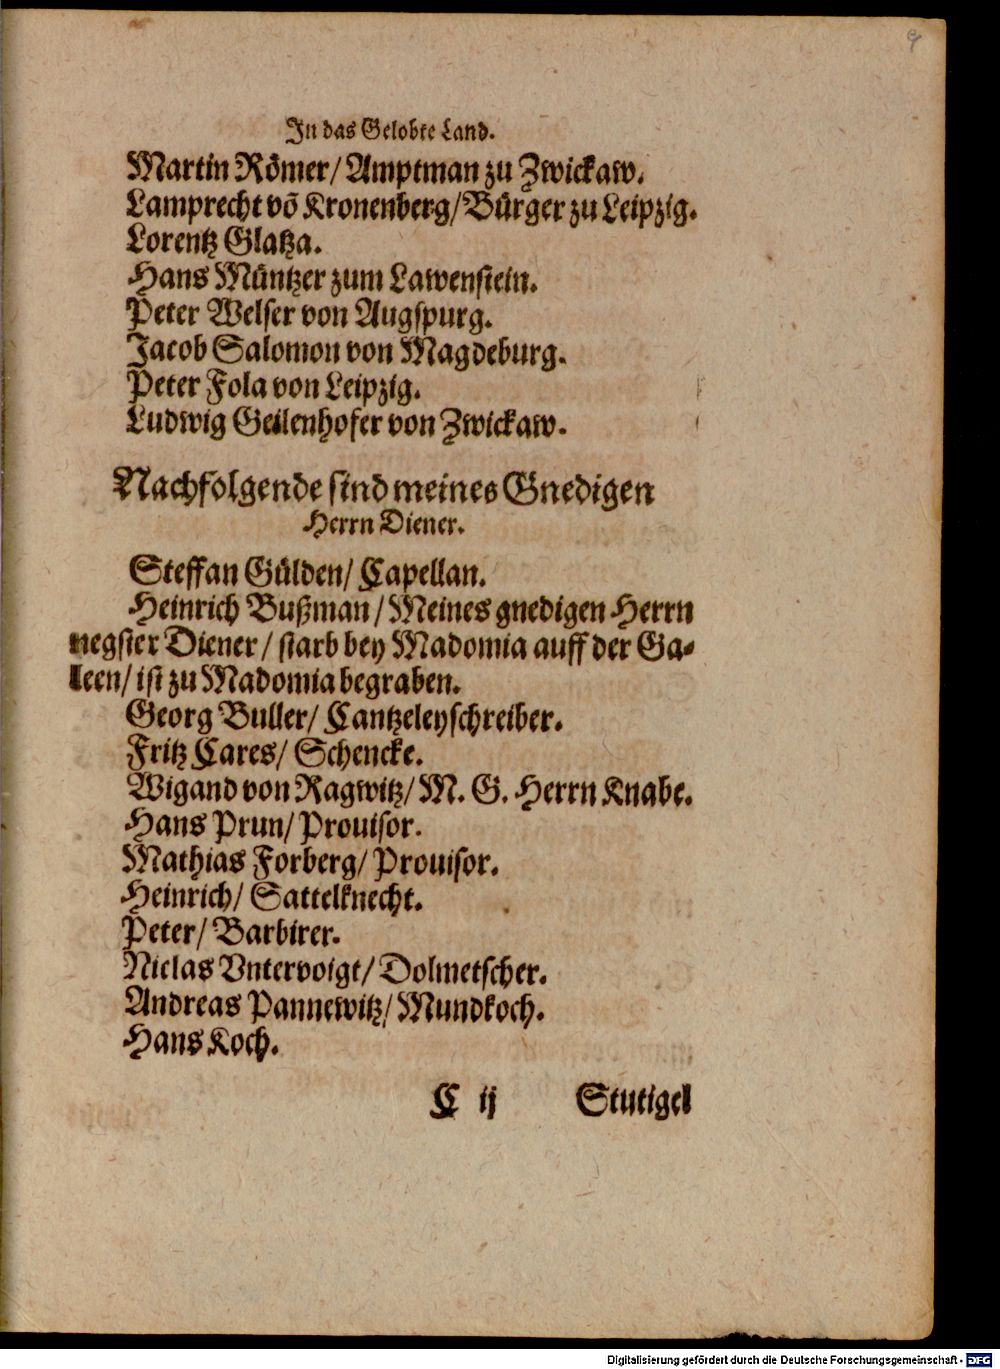 In das Gelobte Land.
Martin Römer/ Amptman zu Zwickaw.
Lamprecht võ Kronenberg/ Bürger zu Leipzig.
Lorentz Glatza.
Hans Müntzer zum Lawenstein.
Peter Welser von Augspurg.
Jacob Salomon von Magdeburg.
Peter Fola von Leipzig.
Ludwig Geilenhofer von Zwickaw.
Nachfolgende sind meines Gnedigen
Herrn Diener.
Steffan Gülden/ Capellan.
Heinrich Bußman/ Meines gnedigen Herrn
negster Diener/ starb bey Madomia auff der Ga-
leen/ ist zu Madomia begraben.
Georg Buller/ Cantzeleyschreiber.
Fritz Cares/ Schencke.
Wigand von Ragwitz/ M. G. Herrn Knabe.
Hans Prun/ Prouisor.
Mathias Forberg/ Prouisor.
Heinrich/ Sattelknecht.
Peter/ Barbirer.
Niclas Vntervoigt/ Dolmetscher.
Andreas Pannewitz/ Mundkoch.
Hans Koch.
C ij Stutigel
Digitalisierung gefördert durch die Deutsche Forschungsgemeinschaft - DFG